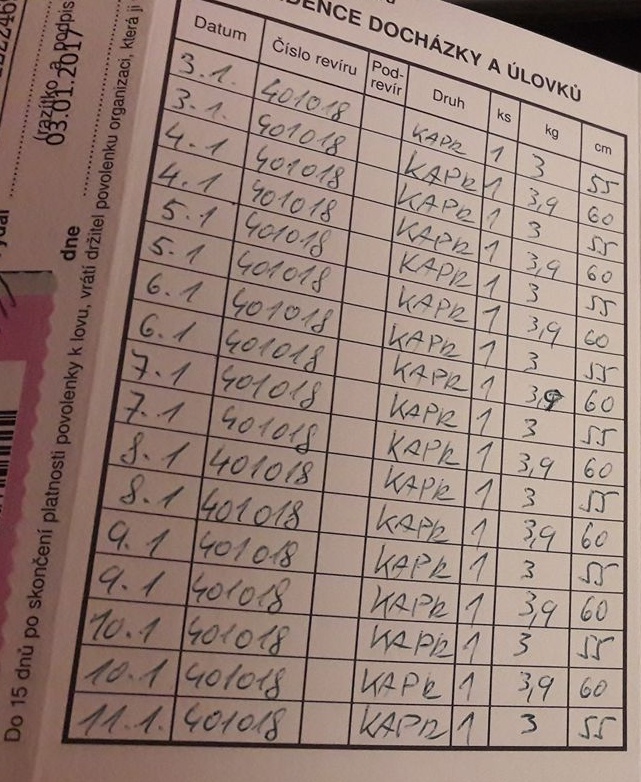 DENCE DOCHÁZKY A ÚLOVKŮ
Datum Číslo revíru Pod-revír Druh ks kg cm
3.1. 401018 KAPR 1 3 55
3.1. 401018 KAPR 1 3,9 60
4.1 401018 KAPR 1 3 55
4.1 401018 KAPR 1 3,9 60
5.1 401018 KAPR 1 3 55
5.1 401018 KAPR 1 3,9 60
6.1 401018 KAPR 1 3 55
6.1 401018 KAPR 1 3,9 60
7.1 401018 KAPR 1 3 55
7.1 401018 KAPR 1 3,9 60
8.1 401018 KAPR 1 3 55
8.1 401018 KAPR 1 3,9 60
9.1 401018 KAPR 1 3 55
9.1 401018 KAPR 1 3,9 60
10.1 401018 KAPR 1 3 55
10.1 401018 KAPR 1 3,9 60
11.1. 401018 KAPR 1 3 55
(razítko a podpis
03.01.2017
dne
Do 15 dnů po skončení platnosti povolenky k lovu, vrátí držitel povolenku organizaci, která ji